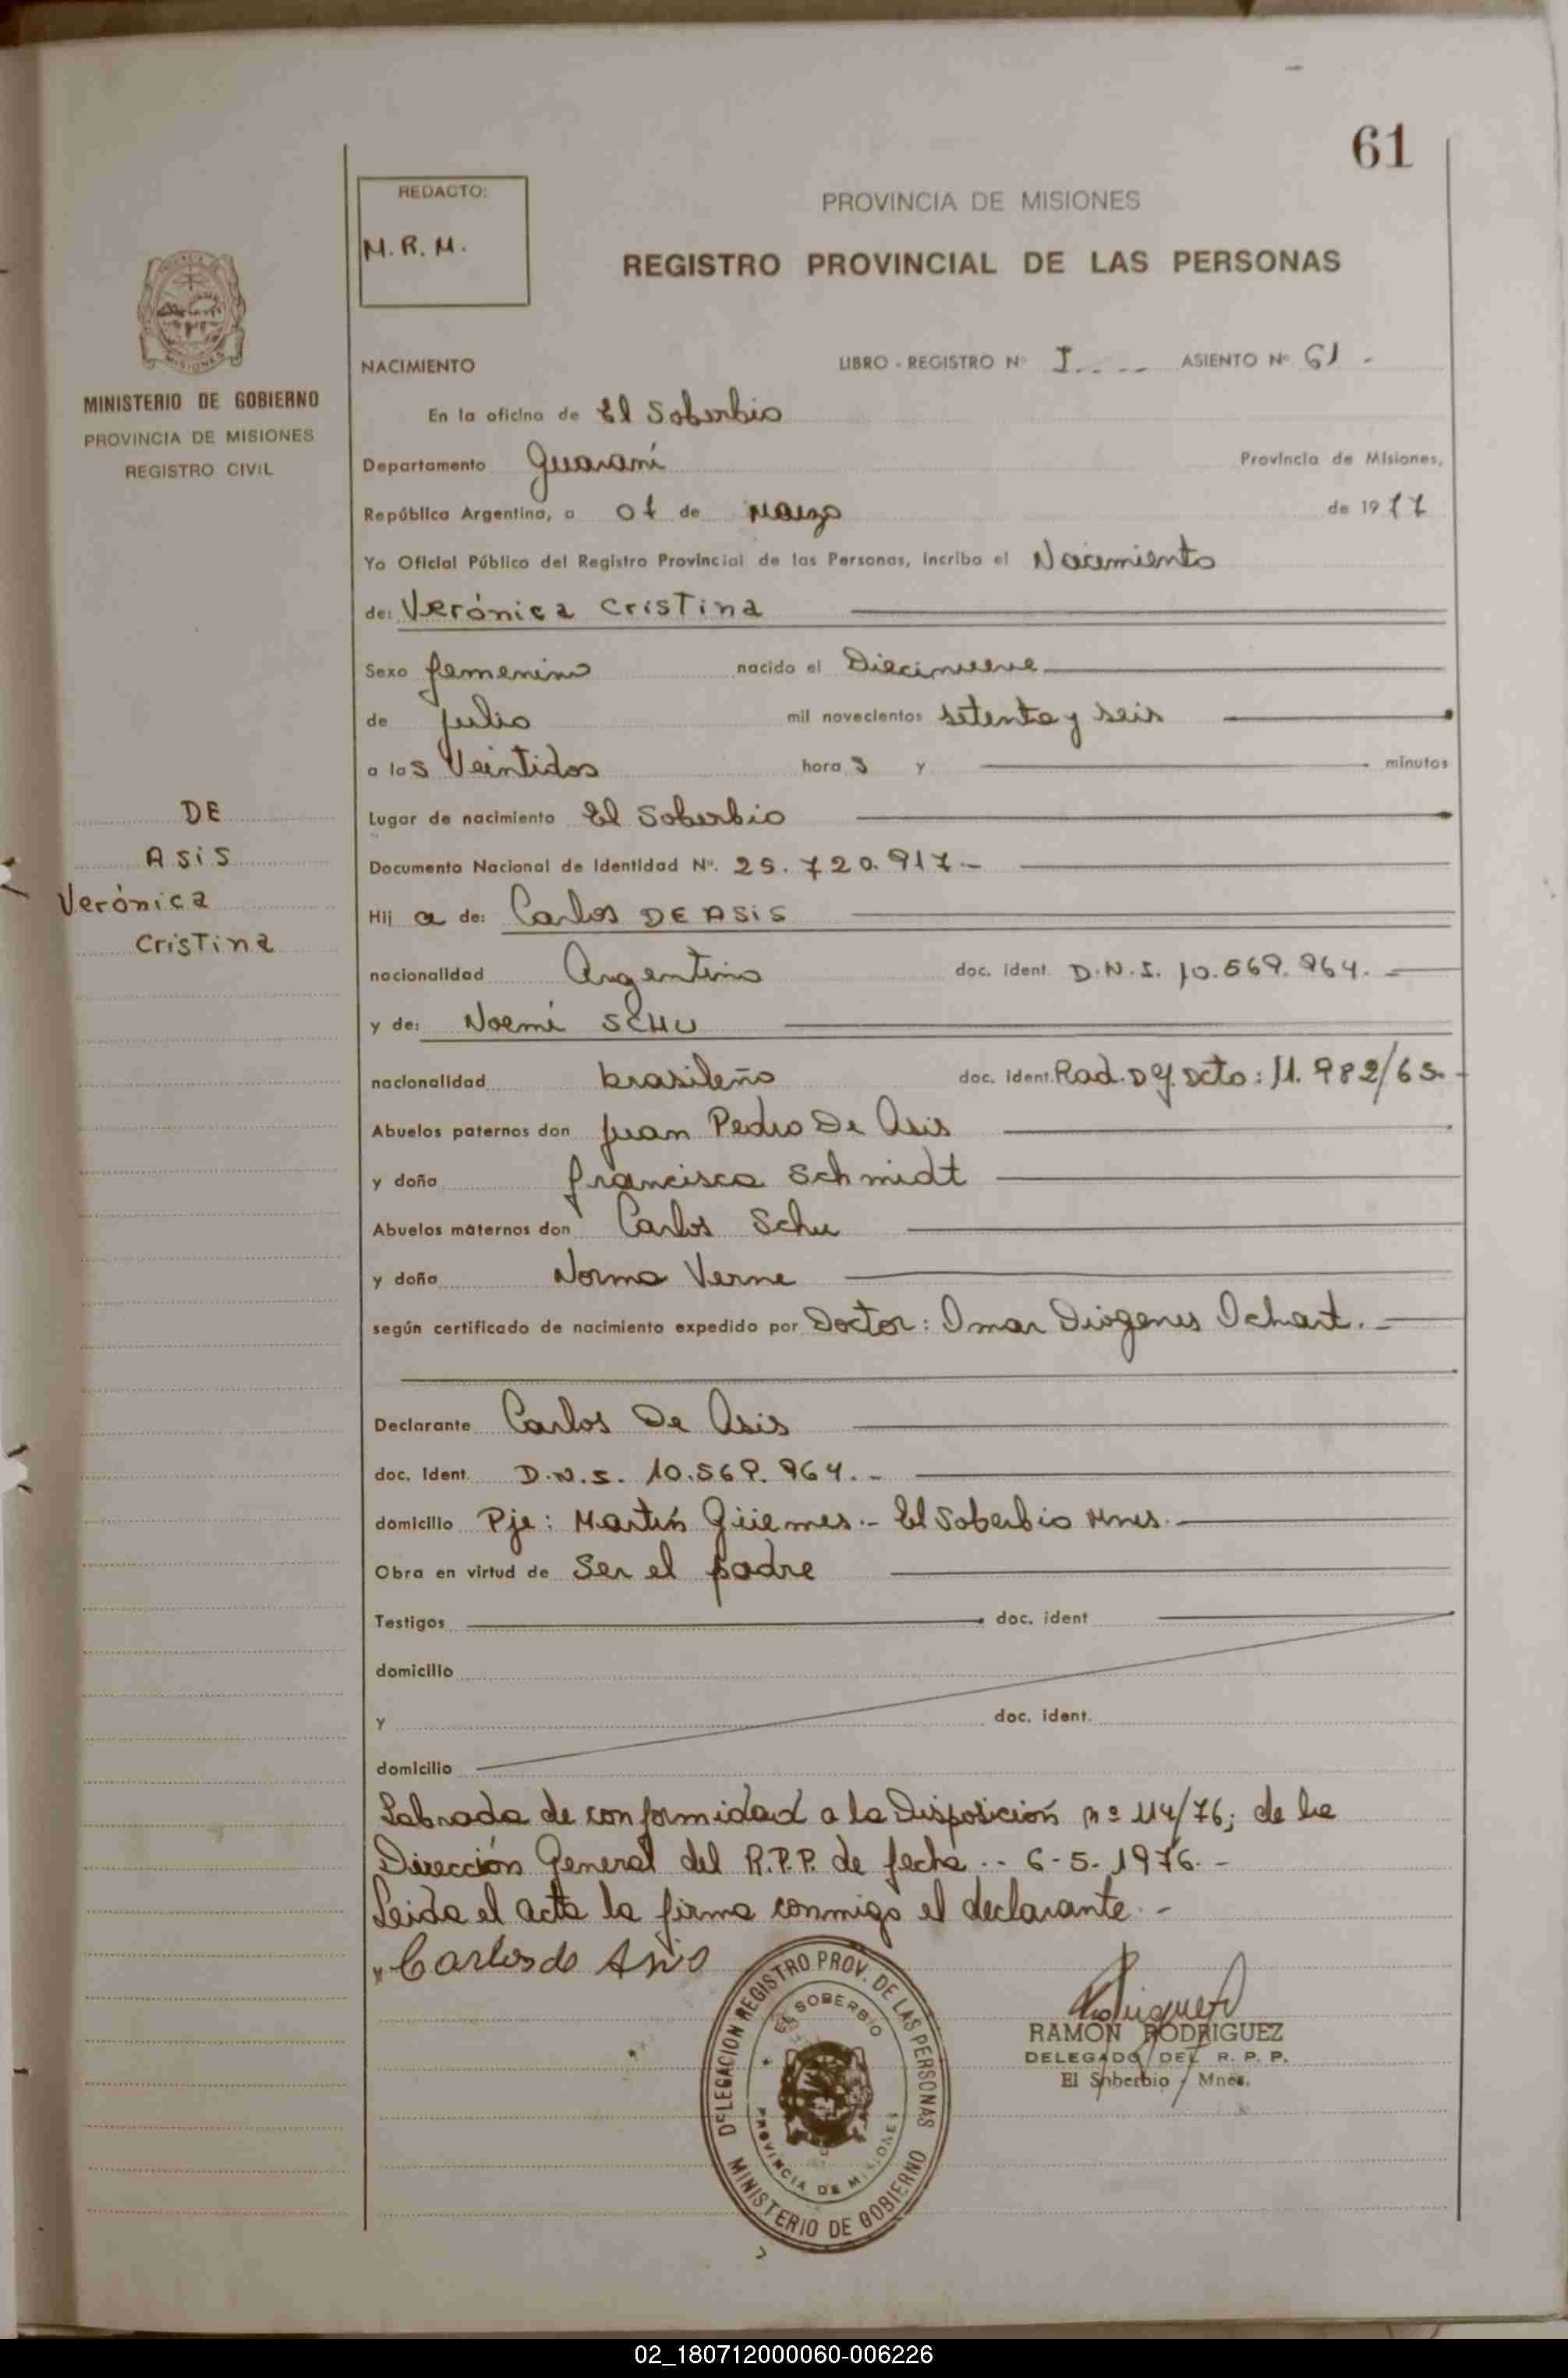 61
REDACTO:
M. R. M.
PROVINCIA DE MISIONES
REGISTRO PROVINCIAL DE LAS PERSONAS
MINISTERIO DE GOBIERNO
PROVINCIA DE MISIONES
REGISTRO CIVIL
NACIMIENTO LIBRO - REGISTRO Nº I.... ASIENTO Nº 61 -
En la oficina de El Soberbio
Departamento Guaraní Provincia de Misiones,
República Argentina, a 07 de Marzo de 1977
Yo Oficial Público del Registro Provincial de las Personas, incribo el Nacimiento
de: Verónica Cristina
Sexo femenino nacido el Diecinueve
de Julio mil novecientos setenta y seis
a las Veintidos horas y minutos
Lugar de nacimiento El Soberbio
DE
ASiS
Verónica
Cristina
Documento Nacional de Identidad Nº. 25.720.917.-
Hij a de: Carlos DE ASiS
nacionalidad Argentino doc. ident. D.N.I. 10.569.964.-
y de: Noemí SCHU
nacionalidad brasileño doc. ident. Rad. Dy. Dcto: 11.982/65.-
Abuelos paternos don Juan Pedro De Asis
y doña francisca Schmidt
Abuelos maternos don Carlos Schu
y doña Norma Verne
según certificado de nacimiento expedido por Doctor: Omar Diogenes Ochart.-
Declarante Carlos De Asis
doc. Ident. D.N.I. 10.569.964.-
domicilio Pje: Martín Güemes.- El Soberbio Mnes.
Obra en virtud de Ser el padre
Testigos doc. ident
domicilio
y doc. ident.
domicilio
Labrada de conformidad a la Disposición nº 114/76; de la
Dirección General del R.P.P. de fecha.- 6-5-1976.-
Leida el acta la firma conmigo el declarante.-
Carlos de Asis
DELEGACION REGISTRO PROV. DE LAS PERSONAS
EL SOBERBIO
PROVINCIA DE MISIONES
MINISTERIO DE GOBIERNO
RAMON RODRIGUEZ
DELEGADO DEL R. P. P.
El Soberbio - Mnes.
02_180712000060-006226